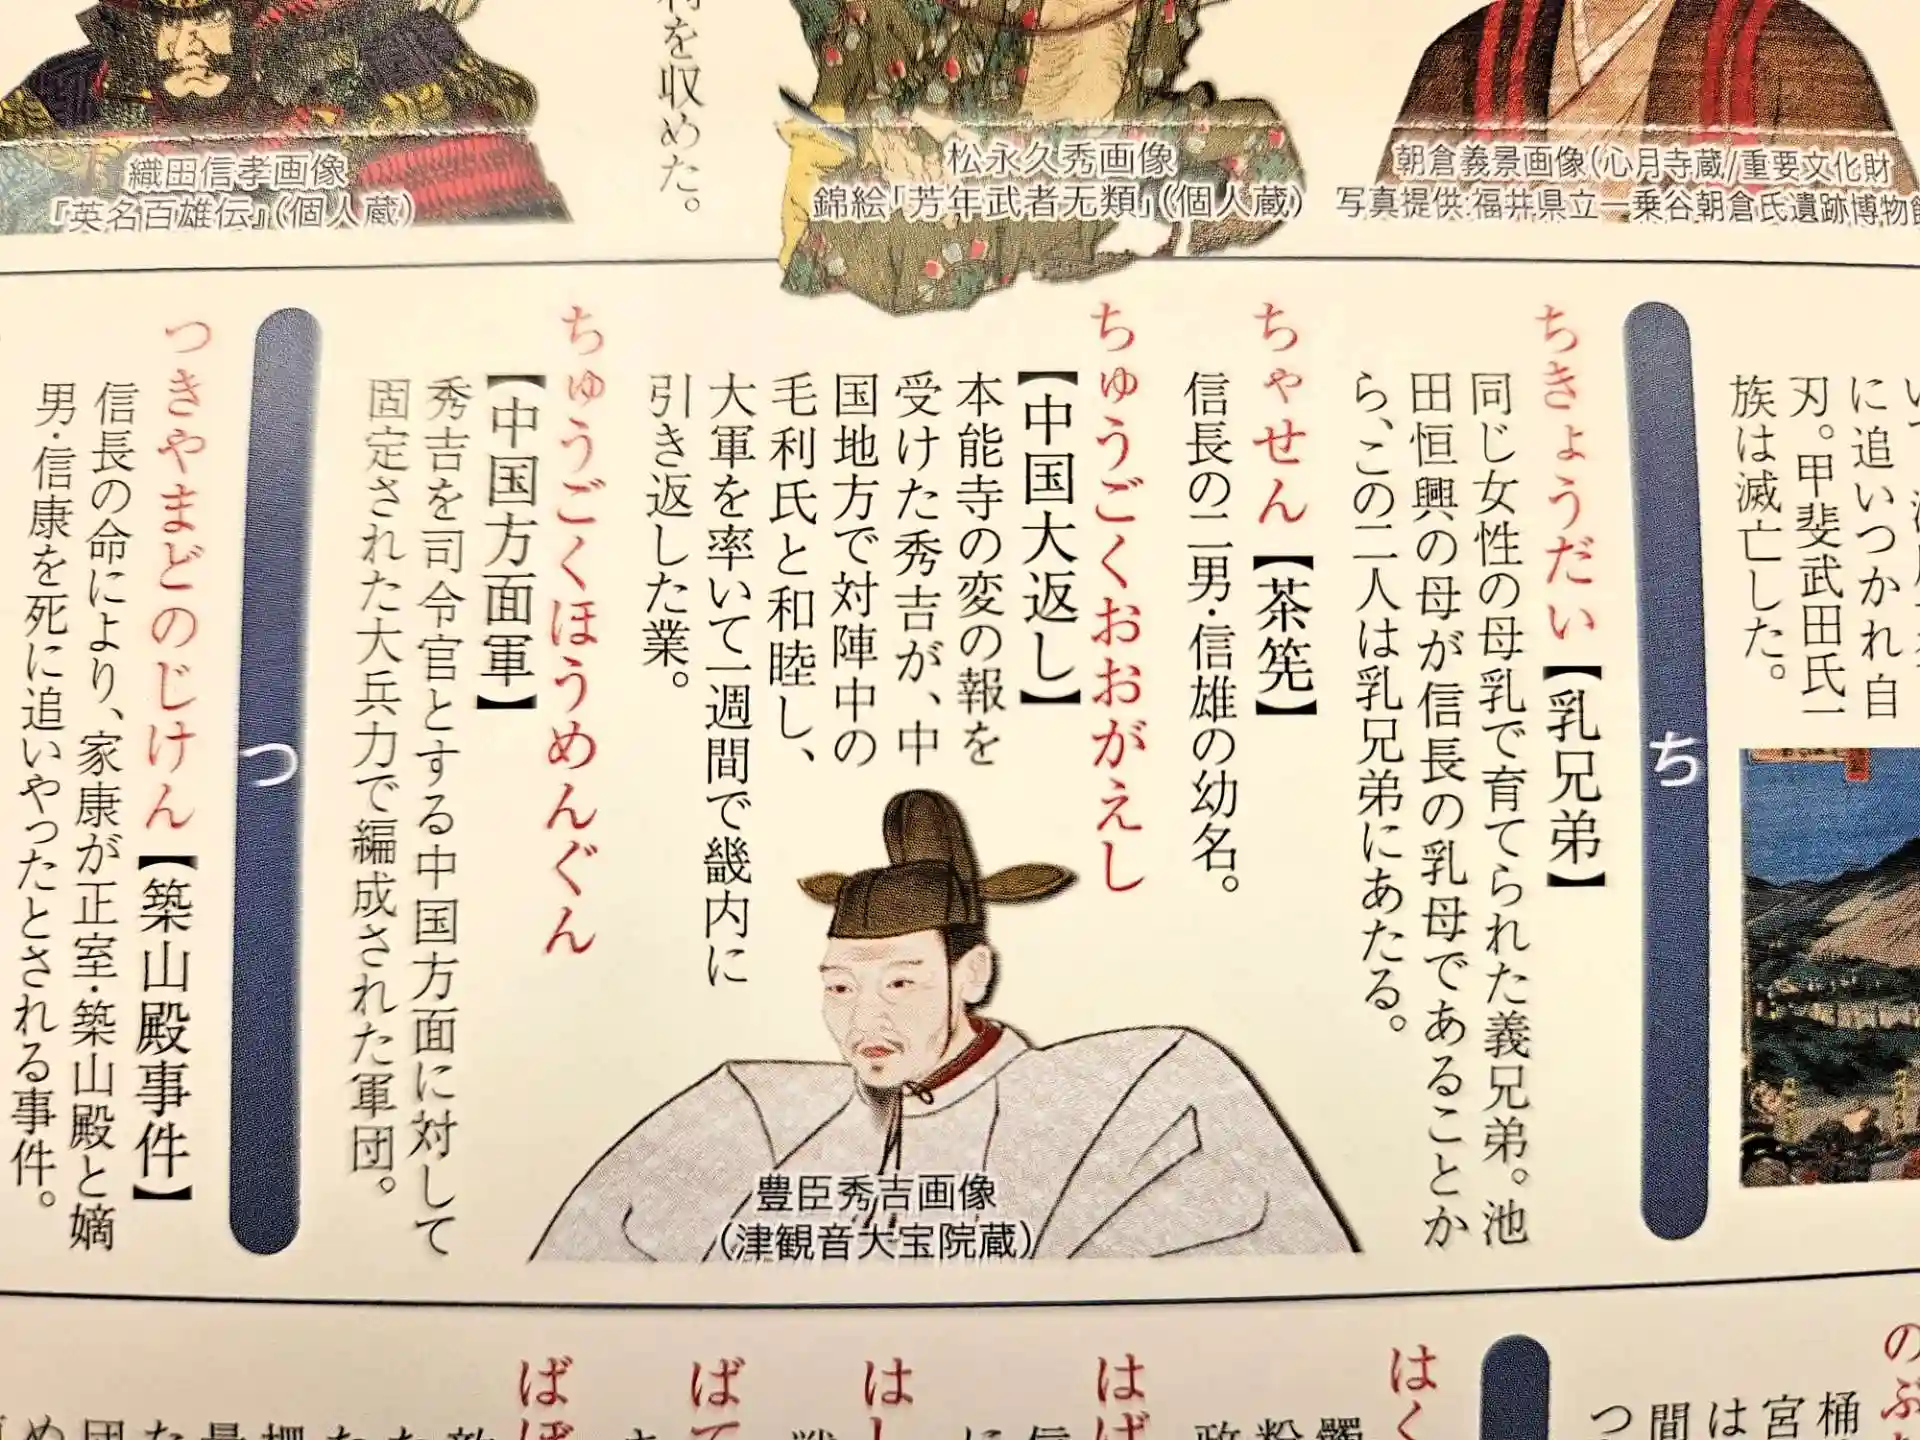 利を収めた。
織田信孝画像
『英名百雄伝』（個人蔵）
松永久秀画像
錦絵「芳年武者无類」（個人蔵）
朝倉義景画像（心月寺蔵/重要文化財
写真提供:福井県立一乗谷朝倉氏遺跡博物館
に追いつかれ自
刃。甲斐武田氏一
族は滅亡した。
ち
ちきょうだい【乳兄弟】
同じ女性の母乳で育てられた義兄弟。池
田恒興の母が信長の乳母であることか
ら、この二人は乳兄弟にあたる。
ちゃせん【茶筅】
信長の二男・信雄の幼名。
ちゅうごくおおがえし
【中国大返し】
本能寺の変の報を
受けた秀吉が、中
国地方で対陣中の
毛利氏と和睦し、
大軍を率いて一週間で畿内に
引き返した業。
豊臣秀吉画像
（津観音大宝院蔵）
ちゅうごくほうめんぐん
【中国方面軍】
秀吉を司令官とする中国方面に対して
固定された大兵力で編成された軍団。
つ
つきやまどのじけん【築山殿事件】
信長の命により、家康が正室・築山殿と嫡
男・信康を死に追いやったとされる事件。
のぶ
桶
宮
は
間
つ
はく
はば
はし
ばて
ばぼ